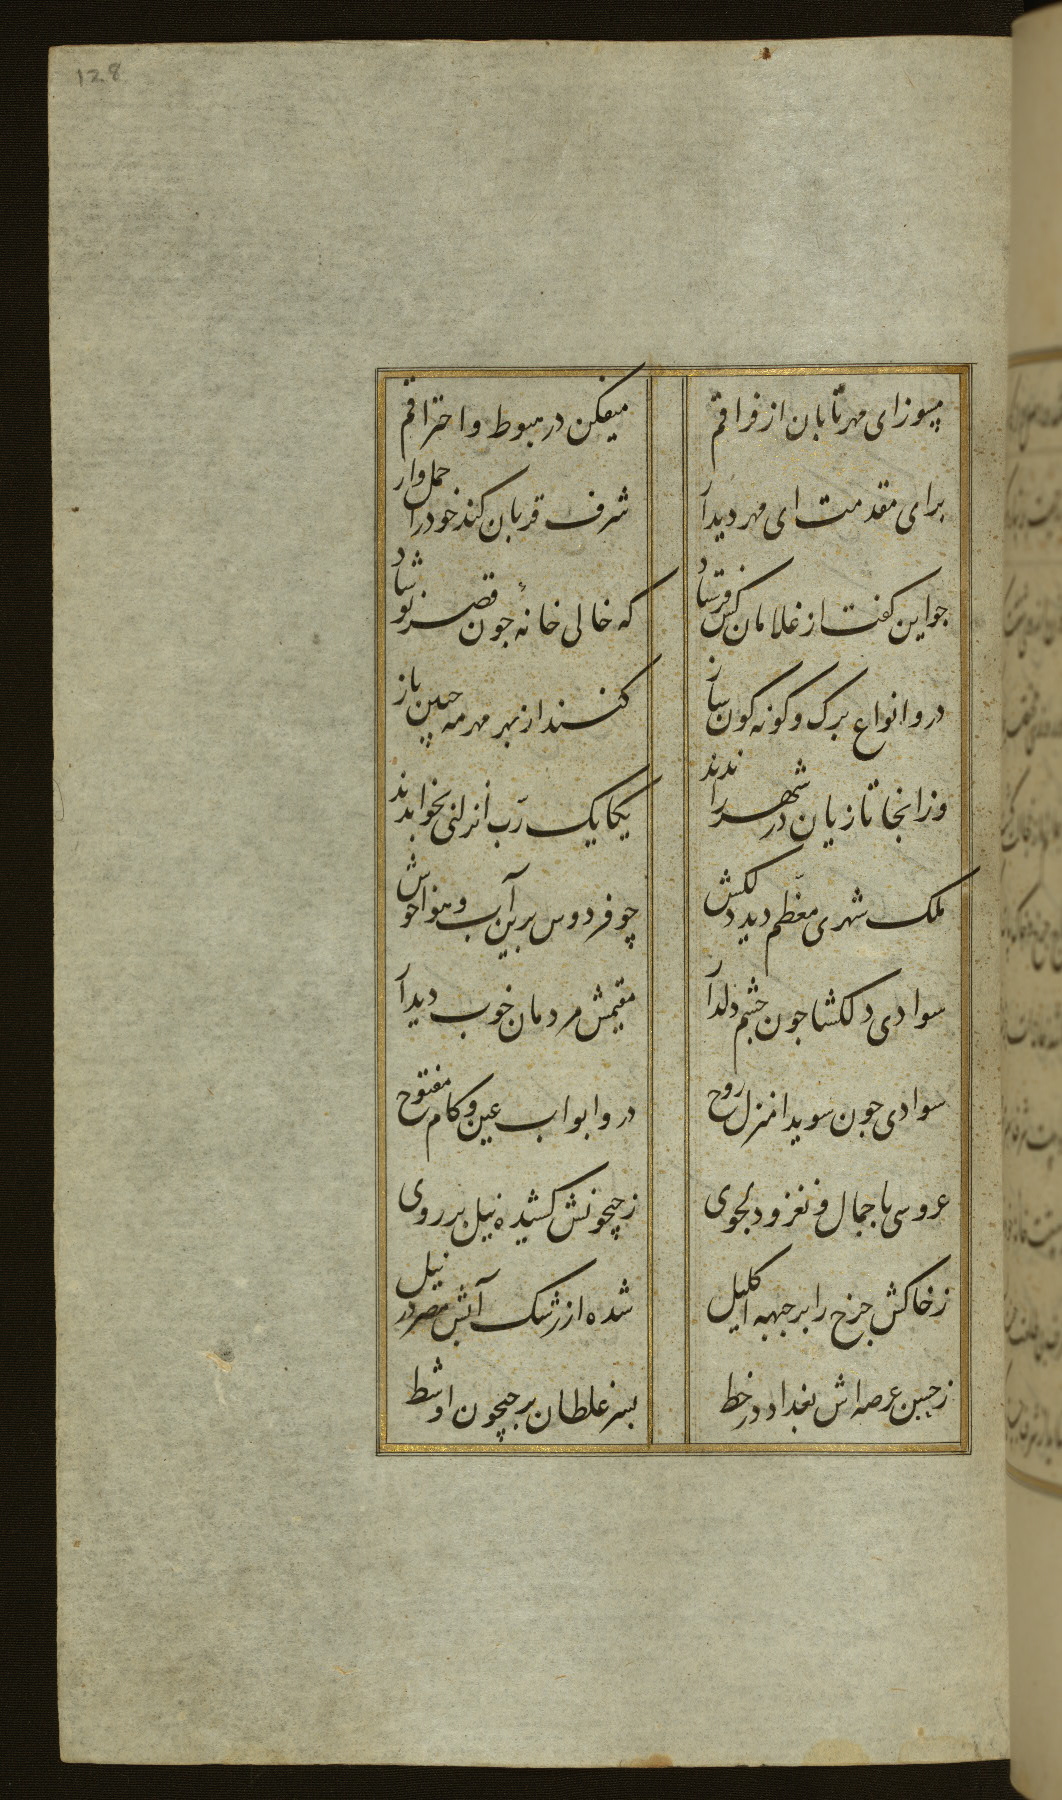 128
مسوز ای مهر تابان از فراقم میفکن در هبوط و احتراقم
برای مقدمت ای مهر دیدار شرف قربان کند خود را حمل وار
جو این کفت از غلامان کس فرستاد که خالی خانهٔ جون قصر نوشاد
درو انواع برک و کونه کون ساز کنند از بهر مهر مه جبین باز
وز انجا تازیان در شهر راندند یکایک رب انزلنی بخواندند
ملک شهری معظم دید دلکش چو فردوس برین آب و هوا خوش
سوادی دلکشا جون جشم دلدار مقیمش مردمان خوب دیدار
سوادی جون سویدا منزل روح درو ابواب عین و کام مفتوح
عروسی با جمال و نغز و دلجوی ز جیحونش کشیده نیل بر روی
ز خاکش جرخ را بر جبهه اکلیل شده از رشک آبش مصر در نیل
ز جیبن عرصه اش بغداد در خط بسر غلطان بر جیحون او شط